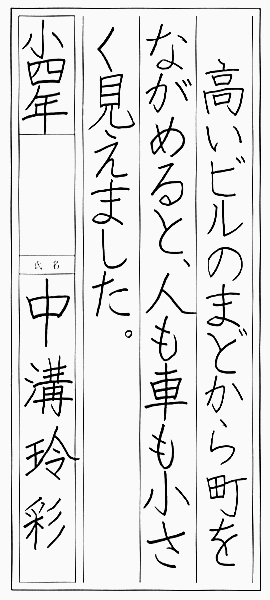 高いビルのまどから町を
ながめると、人も車も小さ
く見えました。
小四年
氏名
中溝玲彩